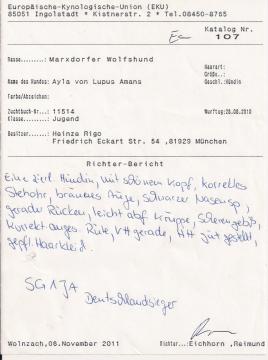 Europäische-Kynologische-Union (EKU)
85051 Ingolstadt * Kistnerstr. 2 * Tel.08450-8765
Katalog Nr.
107
Rasse.........: Marxdorfer Wolfshund
Haarart:
Größe.:
Name des Hundes: Ayla von Lupus Amans
Geschl.:Hündin
Farbe/Abzeichen:
Zuchtbuch-Nr...: 11514
Wurftag:28.08.2010
Klasse.........: Jugend
Besitzer.......: Heinze Rigo
Friedrich Eckart Str. 54 ,81929 München
Richter-Bericht
Eine zierl. Hündin, mit schönem Kopf, korrektes
Stehohr, braunes Auge, schwarzer Nasensp.,
gerader Rücken, leicht abf. Kruppe, Scherengebiß,
korrekt anges. Rute, VH gerade, HH gut gestellt,
gepfl. Haarkleid.
SG1 JA
Deutschlandsieger
Wolnzach,06.November 2011
Richter...: Eichhorn ,Reimund